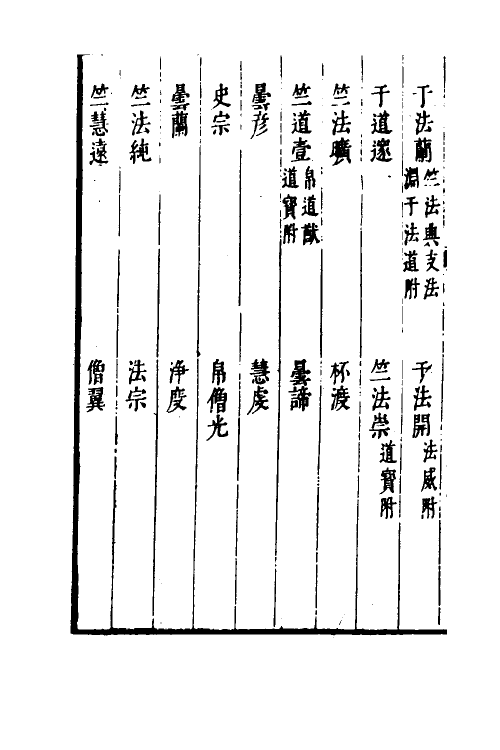 于法蘭竺法興支法淵于法道附　于法開法威附
于道邃　竺法崇道寳附
竺法曠　杯渡
竺道壹帛道猷道寳附　曇諦
曇彦　慧虔
史宗　帛僧光
曇蘭　淨度
竺法純　法宗
竺慧遠　僧翼